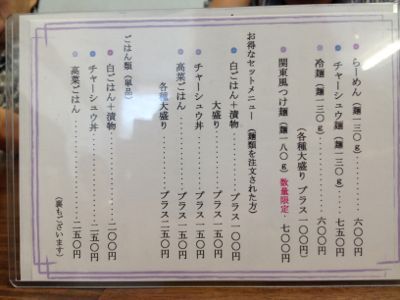 らーめん（麺一三〇ｇ）‥‥‥六〇〇円
チャーシュウ麺（麺一三〇ｇ）‥‥七五〇円
冷麺（麺一三〇ｇ）‥‥‥六〇〇円
（各種大盛り プラス一〇〇円）
関東風つけ麺（麺一八〇ｇ）数量限定‥七〇〇円
お得なセットメニュー（麺類を注文された方）
白ごはん＋漬物‥‥‥プラス一〇〇円
大盛り‥‥‥プラス一五〇円
チャーシュウ丼‥‥‥プラス二〇〇円
高菜ごはん‥‥‥プラス二〇〇円
各種大盛り‥‥‥プラス二五〇円
ごはん類（単品）
白ごはん＋漬物‥‥‥二〇〇円
チャーシュウ丼‥‥‥二五〇円
高菜ごはん‥‥‥二五〇円
（裏もございます）